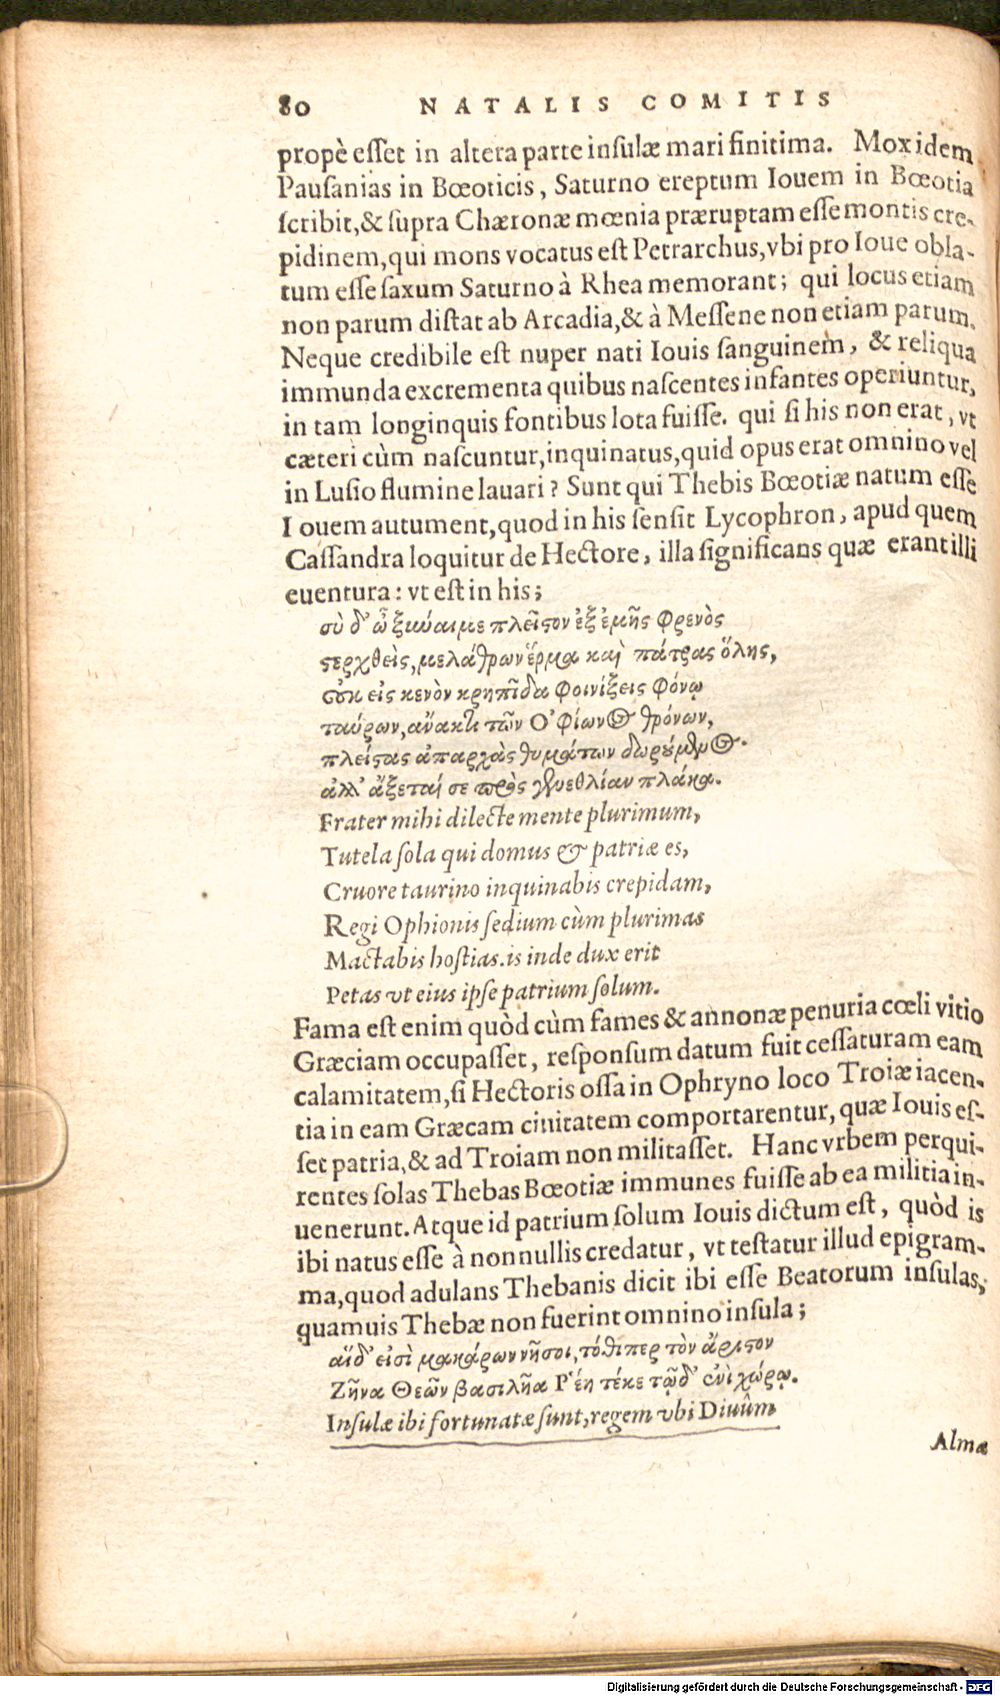 80 NATALIS COMITIS
propè esset in altera parte insulæ mari finitima. Mox idem
Pausanias in Bœoticis, Saturno ereptum Iouem in Bœotia
scribit,& supra Chæronæ mœnia præruptam esse montis cre-
pidinem,qui mons vocatus est Petrarchus,vbi pro Ioue obla-
tum esse saxum Saturno à Rhea memorant; qui locus etiam
non parum distat ab Arcadia,& à Messene non etiam parum.
Neque credibile est nuper nati Iouis sanguinem, & reliqua
immunda excrementa quibus nascentes infantes operiuntur,
in tam longinquis fontibus lota fuisse. qui si his non erat, vt
cæteri cùm nascuntur,inquinatus,quid opus erat omnino vel
in Lusio flumine lauari? Sunt qui Thebis Bœotiæ natum esse
Iouem autument,quod in his sensit Lycophron, apud quem
Cassandra loquitur de Hectore, illa significans quæ erant illi
euentura: vt est in his;
σὺ δ' ὦ ξύναιμε πλεῖςον ἐξ ἐμῆς φρενὸς
ςερχθεὶς, μελάθρων ἕρμα καὶ πάτρας ὅλης,
οὐκ εἰς κενὸν κρηπῖδα φοινίξεις φόνῳ
ταύρων, ἄνακτι τῶν Ο'φίωνος θρόνων,
πλείςας ἀπαρχὰς θυμάτων δωρούμενος.
ἀλλ' ἄξεταί σε πρὸς γενεθλίαν πλάκα.
Frater mihi dilecte mente plurimum,
Tutela sola qui domus & patriæ es,
Cruore taurino inquinabis crepidam,
Regi Ophionis sedium cùm plurimas
Mactabis hostias.is inde dux erit
Petas vt eius ipse patrium solum.
Fama est enim quòd cùm fames & annonæ penuria cœli vitio
Græciam occupasset, responsum datum fuit cessaturam eam
calamitatem,si Hectoris ossa in Ophryno loco Troiæ iacen-
tia in eam Græcam ciuitatem comportarentur, quæ Iouis es-
set patria,& ad Troiam non militasset. Hanc vrbem perqui-
rentes solas Thebas Bœotiæ immunes fuisse ab ea militia in-
uenerunt. Atque id patrium solum Iouis dictum est, quòd is
ibi natus esse à nonnullis credatur, vt testatur illud epigram-
ma,quod adulans Thebanis dicit ibi esse Beatorum insulas,
quamuis Thebæ non fuerint omnino insula;
αἵδ' εἰσὶ μακάρων νῆσοι, τόθιπερ τὸν ἄριςον
Ζῆνα Θεῶν βασιλῆα Ρ'έη τέκε τῷδ' ἐνὶ χώρῳ.
Insulæ ibi fortunatæ sunt,regem vbi Diuûm
Almæ
Digitalisierung gefördert durch die Deutsche Forschungsgemeinschaft - DFG